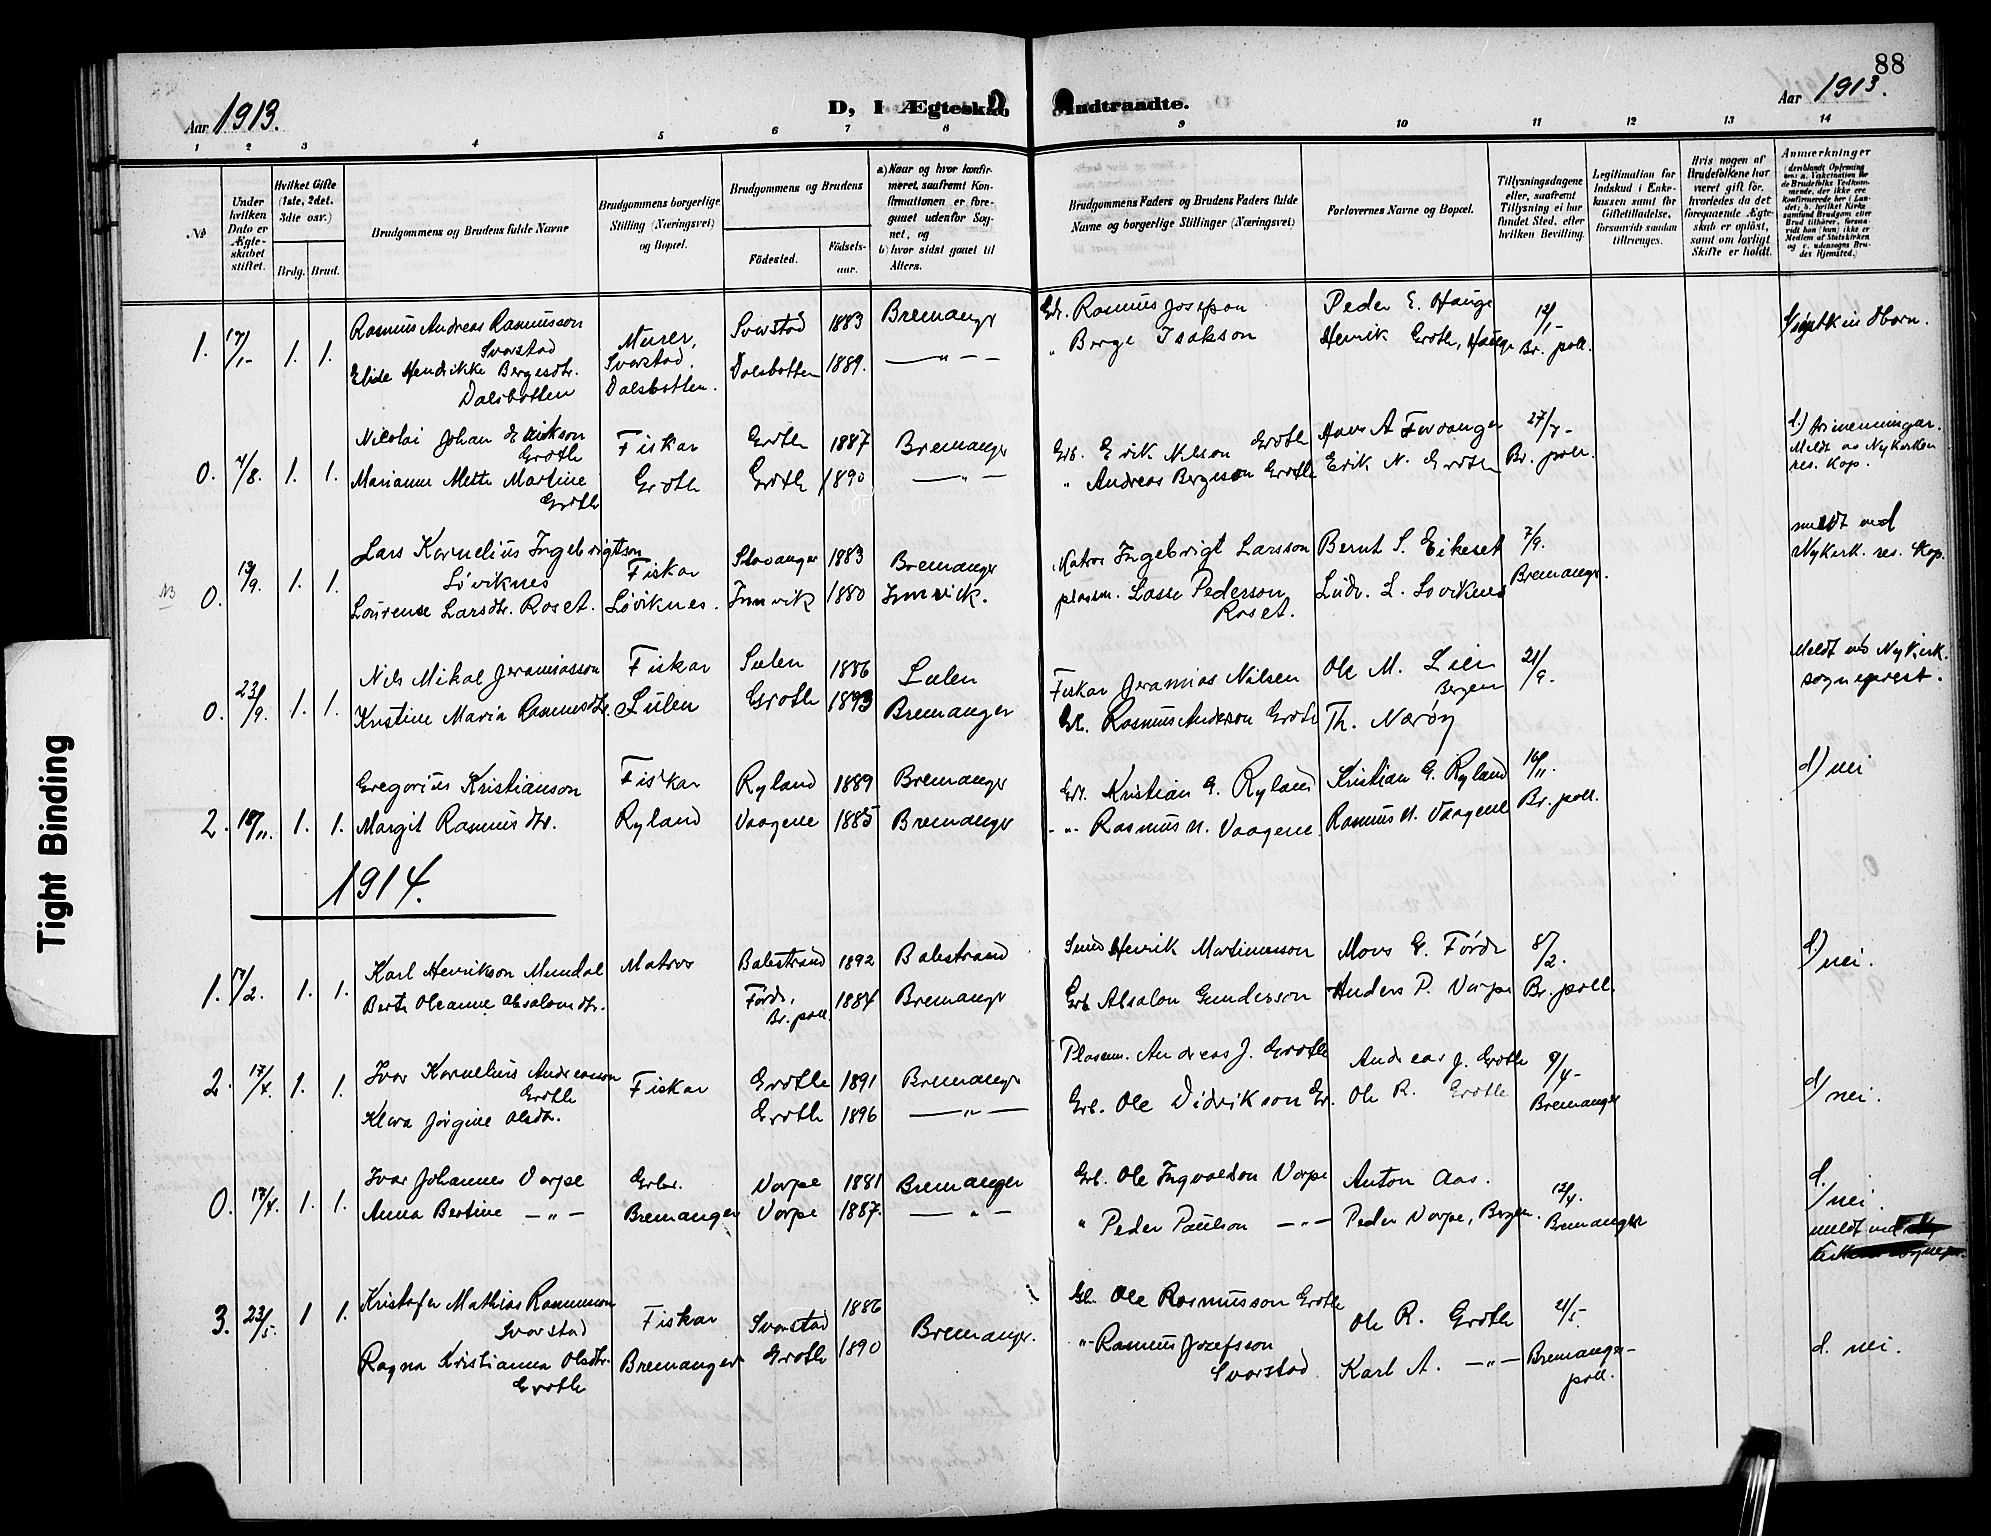 88
Aar 1913.
D, I Ægteskab Indtraadte.
Aar 1913.
1 2 3 4 5 6 7 8 9 10 11 12 13 14
No
Under hvilken Dato er Ægteskabet stiftet.
Hvilket Gifte (1ste, 2det, 3die osv.)
Brdg. Brud.
Brudgommens og Brudens fulde Navne
Brudgommens borgerlige Stilling (Næringsvei) og Bopæl.
Brudgommens og Brudens
Fødested.
Fødsels-aar.
a) Naar og hvor konfirmeret, saafremt Konfirmationen er foregaaet udenfor Sognet, og
b) hvor sidst gaaet til Alters.
Brudgommens Faders og Brudens Faders fulde Navne og borgerlige Stillinger (Næringsvei)
Forlovernes Navne og Bopæl.
Tillysningsdagene eller, saafremt Tillysning ei har fundet Sted, efter hvilken Bevilling.
Legitimation for Indskud i Enkekassen samt for Giftetilladelse, forsaavidt saadan tiltrenges.
Hvis nogen af Brudefolkene har været gift før, hvorledes da det foregaaende Ægteskab er opløst, samt om lovligt Skifte er holdt.
Anmærkninger
1. 17/1- 1. 1. Rasmus Andreas Rasmusson Svarstad Murer, Svarstad. Svarstad 1883 Bremanger Gbr. Rasmus Josefson Peder E. Hauge 12/1-
Elide Hendrikke Bergesdtr. Dalsbotten Dalsbotten. Dalsbotten 1889. — " — " Berge Isakson Henrik Grotle, Hauge Br. poll.
0. 4/8. 1. 1. Nicolai Johan Erikson Grotle Fiskar Grotle 1887 Bremanger Grb. Erik Nilson Grotle Hans A 27/7-
Marianne Mette Martine Grotle Grotle Grotle 1890 — " — " Andreas Bergeson Grotle Erik N. Grotle Br. poll.
Meldt av Nykirken res. Kap.
NB 0. 13/9. 1. 1. Lars Kornelius Ingebrigtson Løviknes Fiskar Stavanger 1883 Bremanger Matros Ingebrigt Larsson Bernt S. Eikeset 7/9. meldt ved Nykirk. res. Kap.
Laurense Larsdtr. Roset. Løviknes. Innvik 1880 Innvik. plassm. Lasse Pederson Roset. Ludv. L. Løviknes Bremanger.
0. 23/9. 1. 1. Nils Mikal Jeramiasson Fiskar Sulen 1886 Sulen Fiskar Jeramias Nilsen Ole M. Lien Bergen 21/9. Meldt ved Nykirk. sogneprest.
Kristine Maria Rasmusdtr. Sulen Grotle 1893 Bremanger Gbr. Rasmus Anderson Grotle Th. Nærøy
2. 18/11. 1. 1. Gregorius Kristianson Fiskar Ryland 1889 Bremanger Gbr. Kristian G. Ryland Kristian G. Ryland 16/11. d) nei
Margit Rasmusdtr. Ryland Vaagene 1885 Bremanger - " - Rasmus N. Vaagene. Rasmus N. Vaagene Br. poll.
1914.
1. 17/2. 1. 1. Karl Henrikson Mundal Matros Balestrand 1892 Balestrand Smed Henrik Martinusson Mons G. Førde 8/2. d) nei.
Berte Oleanne Absalomdtr. Førde, Br. poll. 1884 Bremanger Grb Absalon Gunderson Anders P. Varpe Br. poll.
2. 17/4. 1. 1. Ivar Kornelius Andreasson Grotle Fiskar Grotle 1891 Bremanger Plassm. Andreas J. Grotle Andreas J. Grotle 9/4- d) nei.
Klara Jørgine Olsdtr. Grotle 1896 — " — Grb. Ole Didrikson Gr. Ole R. Grotle Bremanger
0. 17/4. 1. 1. Ivar Johannes Varpe Grbr. Varpe 1881 Bremanger Grb. Ole Ingvaldson Varpe Anton Aas. 12/4. d) nei.
Anna Bertine — " — Bremanger Varpe 1887. — " — " Peder Paulson — " — Peder Varpe, Bergen. Bremanger meldt ved
3. 23/5. 1 1. Kristofer Mathias Rasmusson Svarstad Fiskar Svarstad 1886 Bremanger. Gbr Ole Rasmusson Grotle Ole R. Grotle 21/5. d. nei.
Ragna Kristianna Olsdtr. Grotle Bremanger Grotle 1890 - " - Rasmus Jozefsson Svarstad Karl A. — " — Bremanger-poll.
Tight Binding